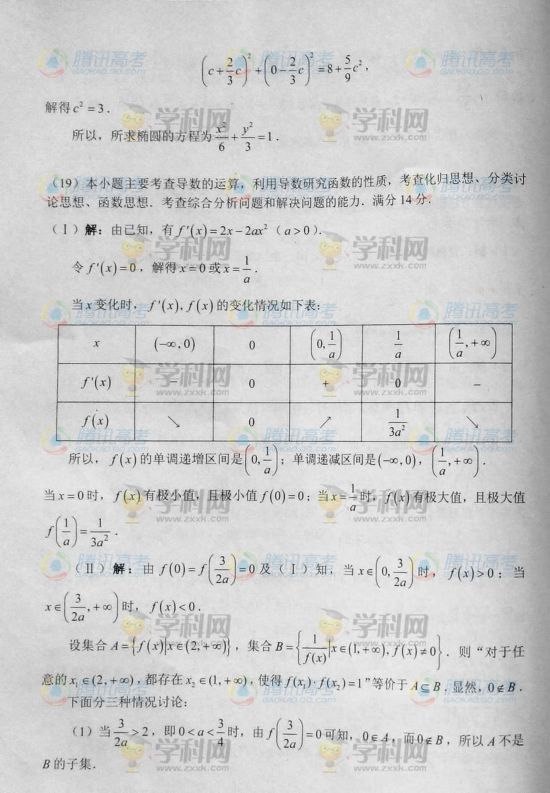 (c+2/3c)²+(0-2/3c)²=8+5/9c²,
解得c²=3.
所以，所求椭圆的方程为x²/6+y²/3=1.
（19）本小题主要考查导数的运算，利用导数研究函数的性质，考查化归思想、分类讨
论思想、函数思想．考查综合分析问题和解决问题的能力．满分14分．
（Ⅰ）解：由已知，有f′(x)=2x-2ax²（a>0）．
令f′(x)=0，解得x=0或x=1/a．
当x变化时，f′(x),f(x)的变化情况如下表：
x (-∞,0) 0 (0,1/a) 1/a (1/a,+∞)
f′(x) − 0 + 0 −
f(x) ↘ 0 ↗ 1/3a² ↘
所以，f(x)的单调递增区间是(0,1/a)；单调递减区间是(-∞,0)，(1/a,+∞)．
当x=0时，f(x)有极小值，且极小值f(0)=0；当x=1/a时，f(x)有极大值，且极大值
f(1/a)=1/3a²．
（Ⅱ）解：由f(0)=f(3/2a)=0及（Ⅰ）知，当x∈(0,3/2a)时，f(x)>0；当
x∈(3/2a,+∞)时，f(x)<0．
设集合A={f(x)|x∈(2,+∞)}，集合B={1/f(x)|x∈(1,+∞),f(x)≠0}．则“对于任
意的x₁∈(2,+∞)，都存在x₂∈(1,+∞)，使得f(x₁)·f(x₂)=1”等价于A⊆B．显然，0∉B．
下面分三种情况讨论：
（1）当3/2a>2，即0<a<3/4时，由f(3/2a)=0可知，0∈A，而0∉B，所以A不是
B的子集．
腾讯高考
GAOKAO.QQ.COM
学科网
www.zxxk.com